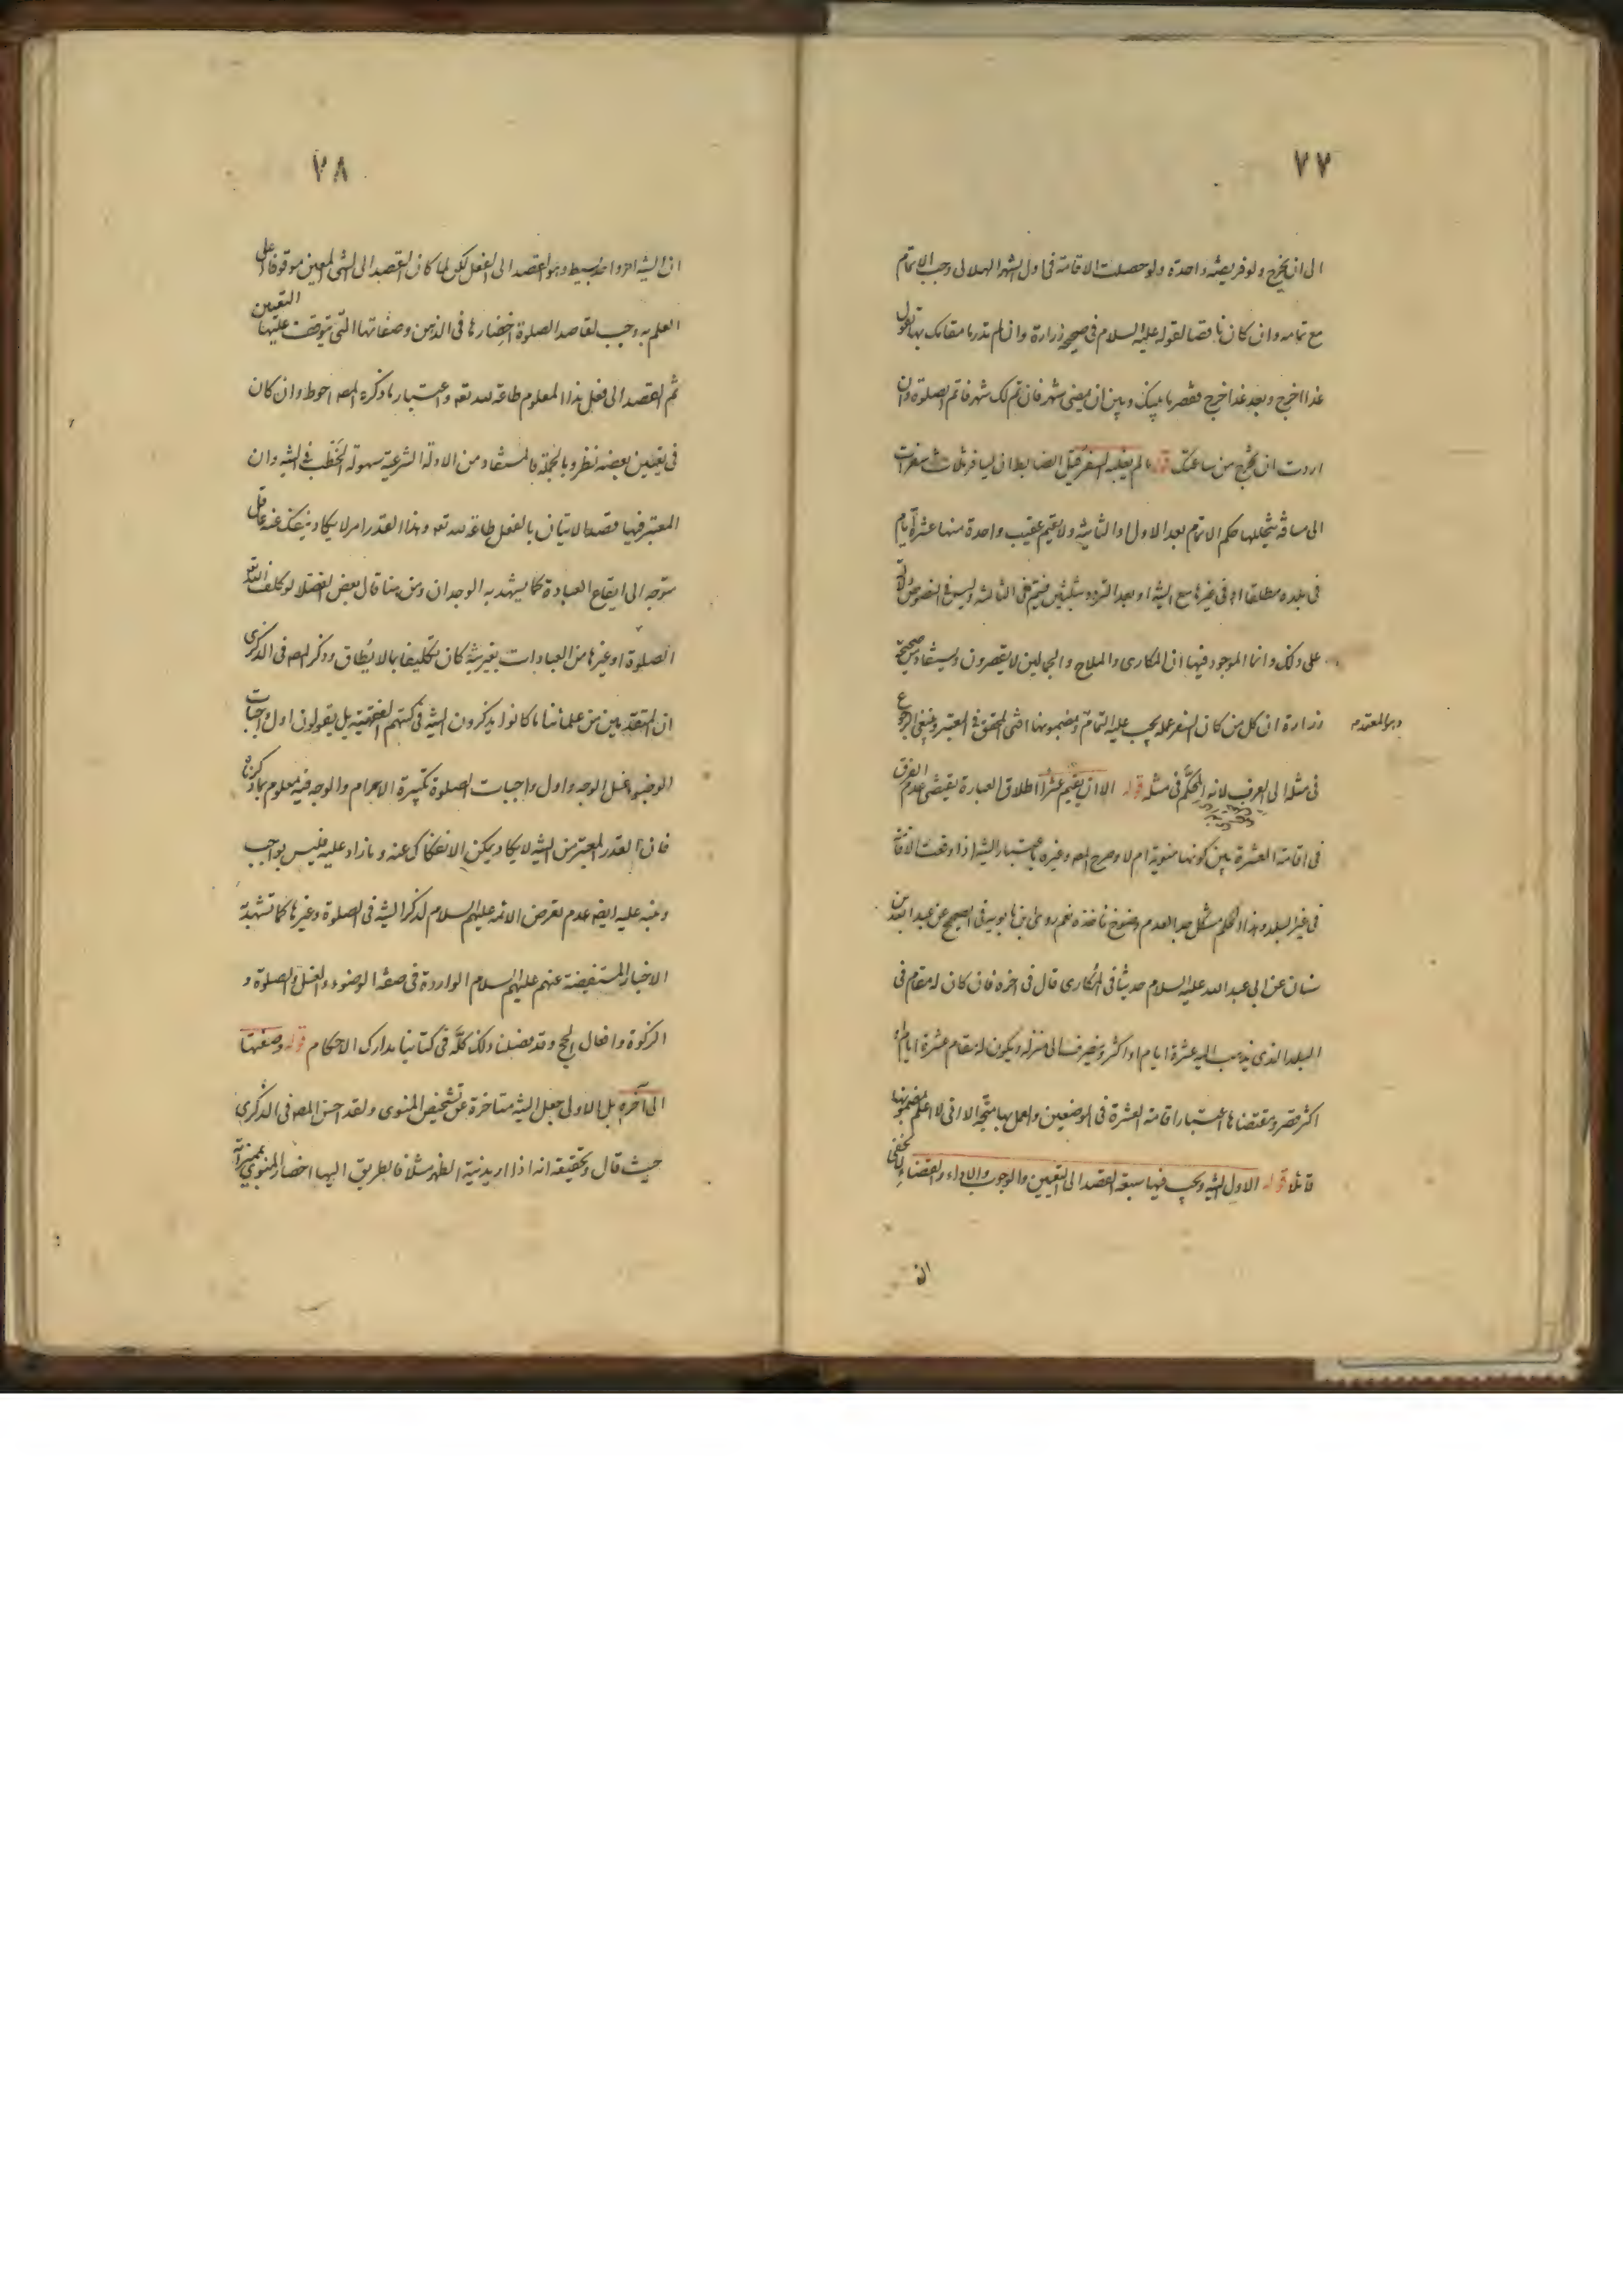 ٧٧
الى ان يخرج ولو فريضة واحدة ولو حصلت الاقامة فى اول الشهر الهلالى وجب الاتمام
مع تمامه وان كان ناقصا لقوله عليه السلام فى صحيحة زرارة وان لم تدر ما مقامك بها تقول
غدا اخرج وبعد غد اخرج فقصر ما بينك وبين ان يمضى شهر فان تم لك شهر فاتم الصلوة وان
اردت ان تخرج من ساعتك قوله ما لم يغلبه السفر قيل الضابط ان يسافر ثلاث سفرات
الى مسافة يتخللها حكم الاتمام بعد الاولى والثانية ولا يقيم عقيب واحدة منها عشرة ايام
فى بلده مطلقا او فى غيرها مع النية او بعد التردد ثلثين فيتم فى الثالثة وليس فى النصوص دلالة
على ذلك وانما الموجود فيها ان المكارى والملاح والجمالين لا يقصرون ويستفاد من صحيحة
زرارة ان كل من كان السفر عمله يجب عليه التمام وبمضمونها افتى المحقق فى المعتبر وينبغى الرجوع
وهو المعتمد
فى مثله الى العرف لانه المحكم فى مثله قوله الا ان يقيم عشرا اطلاق العبارة يقتضى عدم الفرق
فى اقامة العشرة بين كونها منوية ام لا وصرح المص وغيره باعتبار النية اذا وقعت الاقامة
فى غير البلد وهذا الحكم مشكل جدا لعدم وضوح ماخذه نعم روى ابن بابويه فى الصحيح عن عبد الله بن
سنان عن ابى عبد الله عليه السلام حديثا فى المكارى قال فى اخره فان كان له مقام فى
البلد الذى يذهب اليه عشرة ايام او اكثر وينصرف الى منزله ويكون له مقام عشرة ايام او
اكثر قصر ومقتضاها اعتبار اقامة العشرة فى الموضعين والعمل بها متجه الا انى لا اعلم بمضمونها
قائلا قوله الاولى النية ويجب فيها سبعة القصد الى التعيين والوجوب والاداء والقضاء لا يخفى
ان
٧٨
ان النية امر واحد بسيط وهو القصد الى الفعل لكن لما كان القصد الى الشئ المعين موقوفا على
العلم به وجب لقاصد الصلوة احضارها فى الذهن وصفاتها التى يتوقف عليها التعيين
ثم القصد الى فعل هذا المعلوم طاعة لله تعه واعتبار ما ذكره المص احوط وان كان
فى تعيين بعضه نظر وبالجملة فالمستفاد من الادلة الشرعية سهولة الخطب فى النية وان
المعتبر فيها قصد الاتيان بالفعل طاعة لله تعه وهذا القدر امر لا يكاد ينفك عنه عاقل
متوجه الى ايقاع العبادة كما يشهد به الوجدان ومن هنا قال بعض الفضلا لو كلف الله تعه
الصلوة او غيرها من العبادات بغير نية كان تكليفا بما لا يطاق وذكر المص فى الذكرى
ان المتقدمين من علمائنا ما كانوا يذكرون النية فى كتبهم الفقهية بل يقولون اول واجبات
الوضوء غسل الوجه واول واجبات الصلوة تكبيرة الاحرام والوجه فيه معلوم بما ذكرناه
فان القدر المعتبر من النية لا يكاد يمكن الانفكاك عنه وما زاد عليه فليس بواجب
وينبه عليه ايضا عدم تعرض الائمة عليهم السلام لذكر النية فى الصلوة وغيرها كما تشهد به
الاخبار المستفيضة عنهم عليهم السلام الواردة فى صفة الوضوء والغسل والصلوة و
الزكوة وافعال الحج وقد فصلنا ذلك كله فى كتابنا مدارك الاحكام قوله وصفتها
الى آخره بل الاولى جعل النية متاخرة عن تشخيص المنوى ولقد احسن المص فى الذكرى
حيث قال وتحقيقه انه اذا اريد نية الظهر مثلا فالطريق اليها احضار المنوى بمميزاته